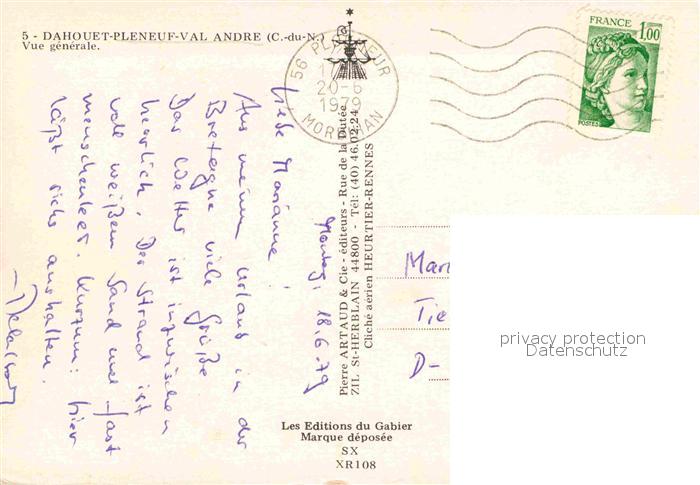 5 - DAHOUET-PLENEUF-VAL ANDRE (C.-du-N.)
Vue générale.
56 PLOEMEUR
20-6
1979
MORBIHAN
FRANCE
1,00
POSTES
Montag, 18.6.79
Liebe Marianne!
Aus meinem Urlaub in der
Bretagne viele Grüße
Das Wetter ist inzwischen
herrlich. Der Strand ist
voll weißem Sand und fast
menschenleer. Kurzum: hier
läßt sichs aushalten.
Pierre ARTAUD & Cie - éditeurs - Rue de la Dutée
ZIL St-HERBLAIN 44800 - Tél: (40) 46.02.24
Cliché aérien HEURTIER-RENNES
Mar
Tie
D-
privacy protection
Datenschutz
Les Editions du Gabier
Marque déposée
SX
XR108